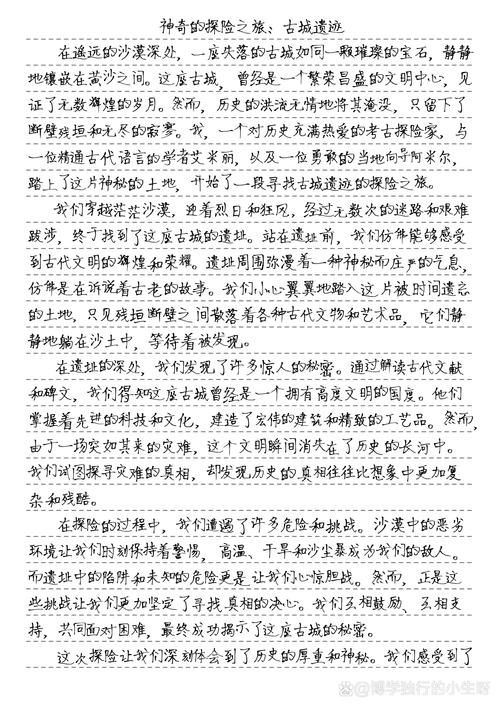 神奇的探险之旅、古城遗迹
在遥远的沙漠深处，一座失落的古城如同一颗璀璨的宝石，静静
地镶嵌在黄沙之间。这座古城，曾经是一个繁荣昌盛的文明中心，见
证了无数辉煌的岁月。然而，历史的洪流无情地将其淹没，只留下了
断壁残垣和无尽的寂寥。我，一个对历史充满热爱的考古探险家，与
一位精通古代语言的学者艾米丽，以及一位勇敢的当地向导阿米尔，
踏上了这片神秘的土地，开始了一段寻找古城遗迹的探险之旅。
我们穿越茫茫沙漠，迎着烈日和狂风，经过无数次的迷路和艰难
跋涉，终于找到了这座古城的遗址。站在遗址前，我们仿佛能够感受
到古代文明的辉煌和荣耀。遗址周围弥漫着一种神秘而庄严的气息，
仿佛是在诉说着古老的故事。我们小心翼翼地踏入这片被时间遗忘
的土地，只见残垣断壁之间散落着各种古代文物和艺术品，它们静
静地躺在沙土中，等待着被发现。
在遗址的深处，我们发现了许多惊人的秘密。通过解读古代文献
和碑文，我们得知这座古城曾经是一个拥有高度文明的国度。他们
掌握着先进的科技和文化，建造了宏伟的建筑和精致的工艺品。然而，
由于一场突如其来的灾难，这个文明瞬间消失在了历史的长河中。
我们试图探寻灾难的真相，却发现历史的真相往往比想象中更加复
杂和残酷。
在探险的过程中，我们遭遇了许多危险和挑战。沙漠中的恶劣
环境让我们时刻保持着警惕，高温、干旱和沙尘暴成为我们的敌人。
而遗址中的陷阱和未知的危险更是让我们心惊胆战。然而，正是这
些挑战让我们更加坚定了寻找真相的决心。我们互相鼓励、互相支
持，共同面对困难，最终成功揭示了这座古城的秘密。
这次探险让我们深刻体会到了历史的厚重和神秘。我们感受到了
@博学独行的小生呀